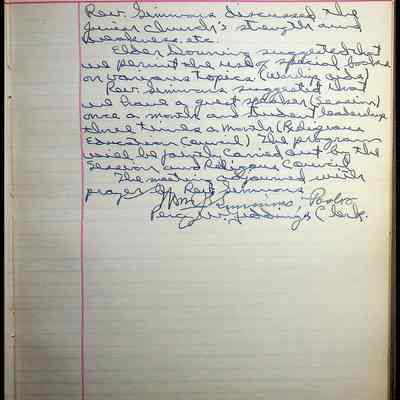 Rev. Simmons discussed the
junior church's strength and
weakness, etc.
Elder Downing suggested that
we permit the use of special books
on various topics (Worship aids)
Rev. Simmons suggested that
we have a guest speaker (Session)
once a month and student leadership
three times a month (Religious
Education Council) The program
will be jointly carried out by the
Session and Religious Council
The meeting adjourned with
prayer by Rev. Simmons
Simmons Pastor
Percy W. Giddings Clerk.